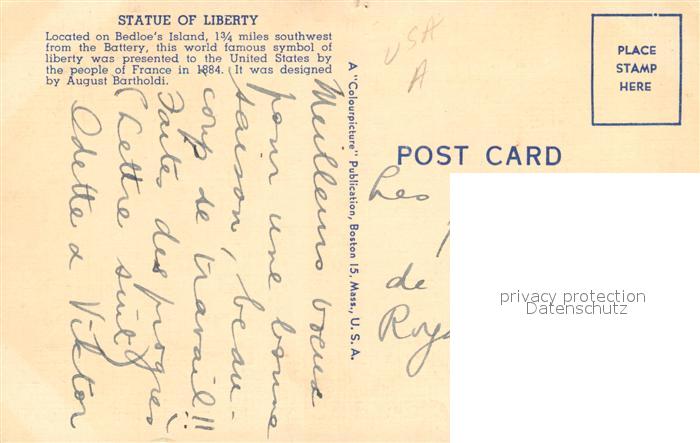 STATUE OF LIBERTY
Located on Bedloe's Island, 1¾ miles southwest
from the Battery, this world famous symbol of
liberty was presented to the United States by
the people of France in 1884. It was designed
by August Bartholdi.
Meilleurs voeux
pour une bonne
saison, beau-
coup de travail!!
Faites des progrès
(lettre suit)
Odette & Viktor
A "Colourpicture" Publication, Boston 15, Mass., U. S. A.
USA
A
PLACE
STAMP
HERE
POST CARD
Les
de
privacy protection
Datenschutz